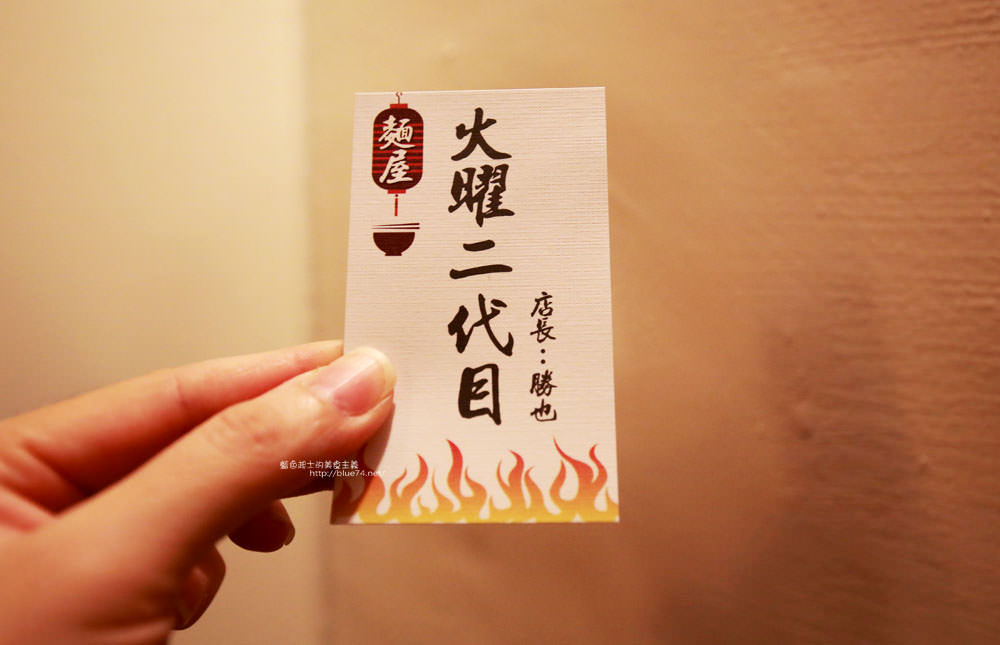 麵屋
火曜二代目
店長：勝也
藍色起士的美食主義
http://blue74.net/